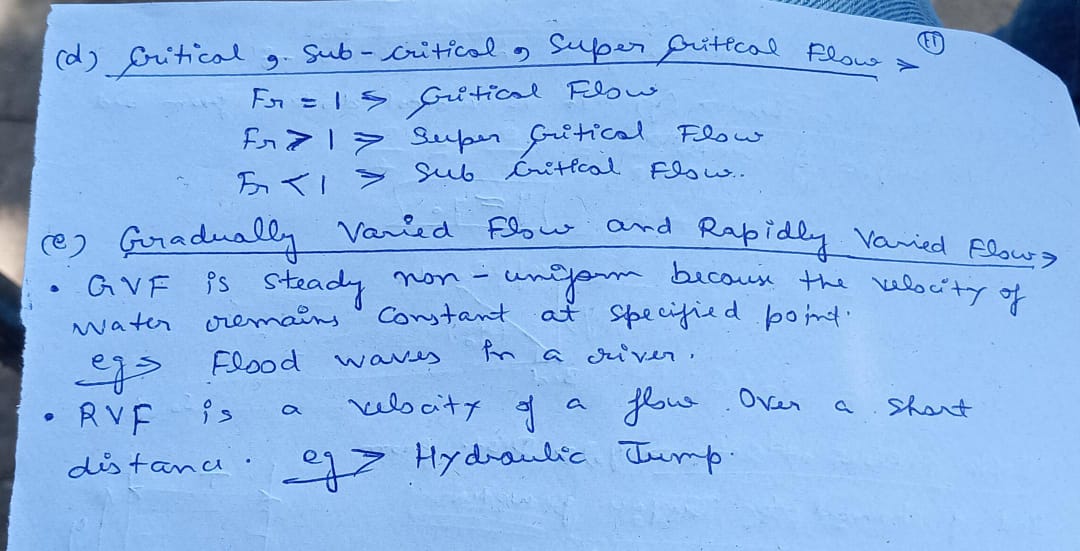 (d) Critical, Sub-critical, Super Critical Flow ⇒
Fr = 1 ⇒ Critical Flow
Fr > 1 ⇒ Super Critical Flow
Fr < 1 ⇒ Sub Critical Flow.
(e) Gradually Varied Flow and Rapidly Varied Flow ⇒
• GVF is steady non-uniform because the velocity of
water remains constant at specified point.
eg ⇒ Flood waves in a river.
• RVF is a velocity of a flow over a short
distance. eg ⇒ Hydraulic Jump.